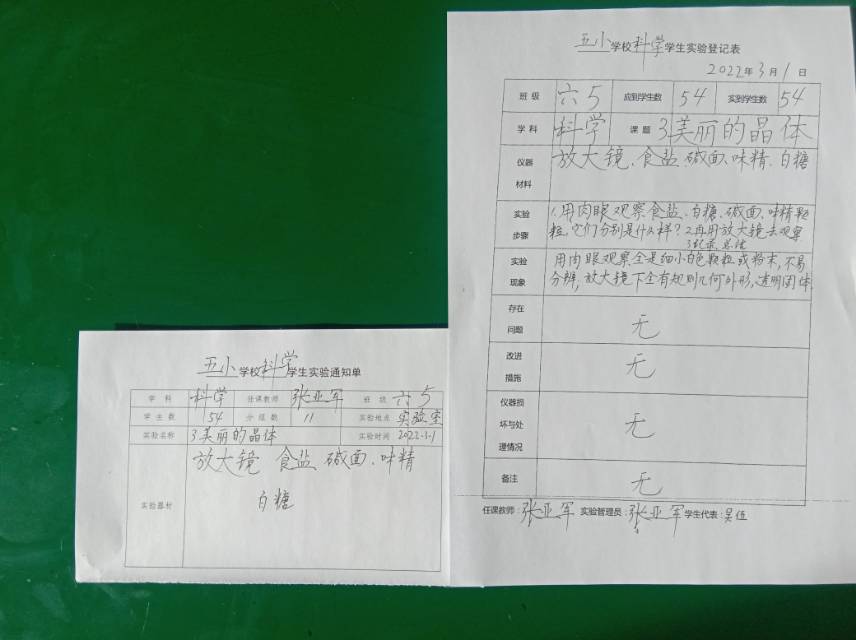 五小学校科学学生实验通知单
学科 科学 任课教师 张亚军 班级 六5
学生数 54 分组数 11 实验地点 实验室
实验名称 3.美丽的晶体 实验时间 2022.3.1
实验器材 放大镜 食盐 碱面、味精
白糖
五小学校科学学生实验登记表
2022年3月1日
班级 六5 应到学生数 54 实到学生数 54
学科 科学 课题 3美丽的晶体
仪器材料 放大镜、食盐、碱面、味精、白糖
实验步骤 1.用肉眼观察食盐、白糖、碱面、味精颗
粒,它们分别是什么样?2.再用放大镜去观察
3记录、总结
实验现象 用肉眼观察全是细小白色颗粒或粉末,不易
分辨,放大镜下全有规则几何外形,透明固体.
存在问题 无
改进措施 无
仪器损坏与处理情况 无
备注 无
任课教师:张亚军 实验管理员:张亚军 学生代表:吴伍